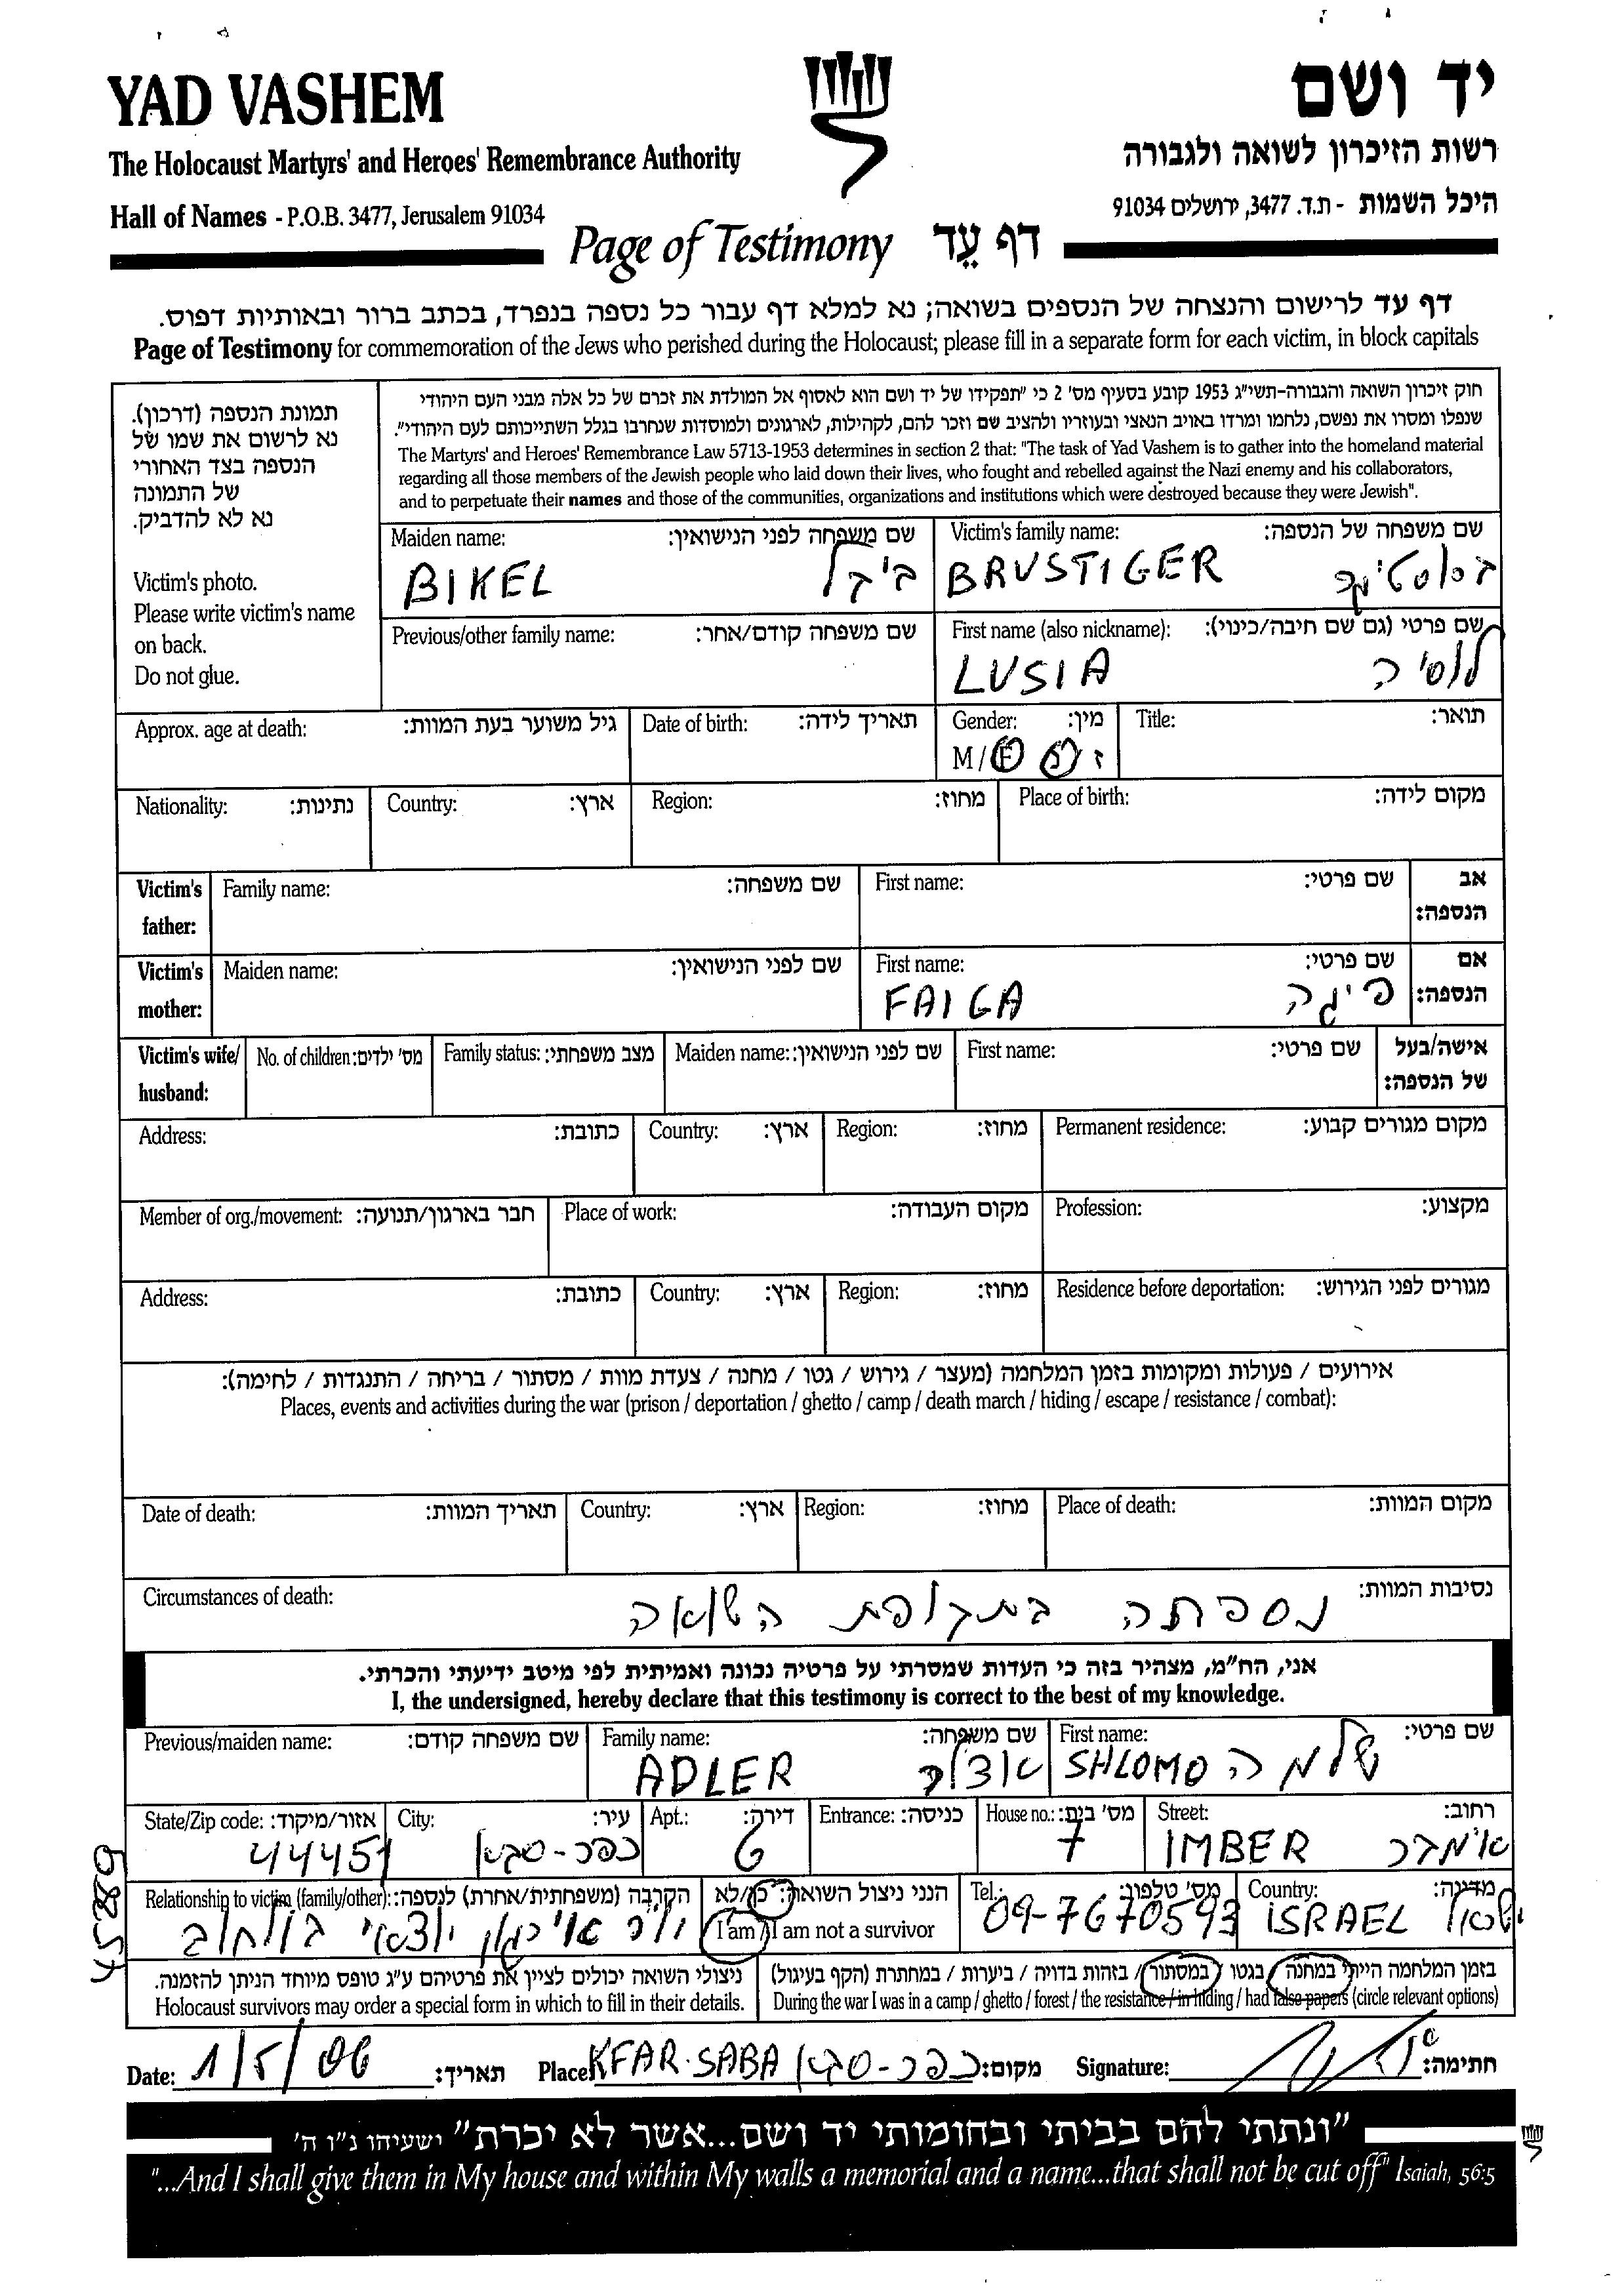 YAD VASHEM
יד ושם
The Holocaust Martyrs' and Heroes' Remembrance Authority
רשות הזיכרון לשואה ולגבורה
Hall of Names - P.O.B. 3477, Jerusalem 91034
היכל השמות - ת.ד. 3477, ירושלים 91034
Page of Testimony דף עֵד
דף עד לרישום והנצחה של הנספים בשואה; נא למלא דף עבור כל נספה בנפרד, בכתב ברור ובאותיות דפוס.
Page of Testimony for commemoration of the Jews who perished during the Holocaust; please fill in a separate form for each victim, in block capitals
תמונת הנספה (דרכון).
נא לרשום את שמו של
הנספה בצד האחורי
של התמונה
נא לא להדביק.
Victim's photo.
Please write victim's name
on back.
Do not glue.
חוק זיכרון השואה והגבורה-תשי"ג 1953 קובע בסעיף מס' 2 כי "תפקידו של יד ושם הוא לאסוף אל המולדת את זכרם של כל אלה מבני העם היהודי
שנפלו ומסרו את נפשם, נלחמו ומרדו באויב הנאצי ובעוזריו ולהציב שם וזכר להם, לקהילות, לארגונים ולמוסדות שנחרבו בגלל השתייכותם לעם היהודי".
The Martyrs' and Heroes' Remembrance Law 5713-1953 determines in section 2 that: "The task of Yad Vashem is to gather into the homeland material
regarding all those members of the Jewish people who laid down their lives, who fought and rebelled against the Nazi enemy and his collaborators,
and to perpetuate their names and those of the communities, organizations and institutions which were destroyed because they were Jewish".
Maiden name: שם משפחה לפני הנישואין: Victim's family name: שם משפחה של הנספה:
BIKEL ביקל BRUSTIGER ברוסטיגר
Previous/other family name: שם משפחה קודם/אחר: First name (also nickname): שם פרטי (גם שם חיבה/כינוי):
LUSIA לוסיה
Approx. age at death: גיל משוער בעת המוות: Date of birth: תאריך לידה: Gender: מין: Title: תואר:
M/F ז/נ
Nationality: נתינות: Country: ארץ: Region: מחוז: Place of birth: מקום לידה:
Victim's father: Family name: שם משפחה: First name: שם פרטי: אב הנספה:
Victim's mother: Maiden name: שם לפני הנישואין: First name: שם פרטי: אם הנספה:
FAIGA פיגה
Victim's wife/husband: No. of children: מס' ילדים: Family status: מצב משפחתי: Maiden name: שם לפני הנישואין: First name: שם פרטי: אישה/בעל של הנספה:
Address: כתובת: Country: ארץ: Region: מחוז: Permanent residence: מקום מגורים קבוע:
Member of org./movement: חבר בארגון/תנועה: Place of work: מקום העבודה: Profession: מקצוע:
Address: כתובת: Country: ארץ: Region: מחוז: Residence before deportation: מגורים לפני הגירוש:
אירועים / פעולות ומקומות בזמן המלחמה (מעצר / גירוש / גטו / מחנה / צעדת מוות / מסתור / בריחה / התנגדות / לחימה):
Places, events and activities during the war (prison / deportation / ghetto / camp / death march / hiding / escape / resistance / combat):
Date of death: תאריך המוות: Country: ארץ: Region: מחוז: Place of death: מקום המוות:
Circumstances of death: נסיבות המוות:
נספתה בתקופת השואה
אני, הח"מ, מצהיר בזה כי העדות שמסרתי על פרטיה נכונה ואמיתית לפי מיטב ידיעתי והכרתי.
I, the undersigned, hereby declare that this testimony is correct to the best of my knowledge.
Previous/maiden name: שם משפחה קודם: Family name: שם משפחה: First name: שם פרטי:
ADLER אדלר SHLOMO שלמה
State/Zip code: אזור/מיקוד: City: עיר: Apt.: דירה: Entrance: כניסה: House no.: מס' בית: Street: רחוב:
44451 כפר-סבא 6 7 IMBER אימבר
Relationship to victim (family/other): הקרבה (משפחתית/אחרת) לנספה: הנני ניצול השואה: כן/לא Tel.: מס' טלפון: Country: מדינה:
יו"ר אירגון יוצאי בולחוב I am / I am not a survivor 09-7670593 ISRAEL ישראל
45889
ניצולי השואה יכולים לציין את פרטיהם ע"ג טופס מיוחד הניתן להזמנה.
Holocaust survivors may order a special form in which to fill in their details.
בזמן המלחמה הייתי במחנה / בגטו / במסתור / בזהות בדויה / ביערות / במחתרת (הקף בעיגול)
During the war I was in a camp / ghetto / forest / the resistance / in hiding / had false papers (circle relevant options)
Date: 1/5/06 תאריך: Place: KFAR-SABA כפר-סבא מקום: Signature: חתימה:
"ונתתי להם בביתי ובחומותי יד ושם...אשר לא יכרת" ישעיהו נ"ו ה'
"...And I shall give them in My house and within My walls a memorial and a name...that shall not be cut off" Isaiah, 56:5